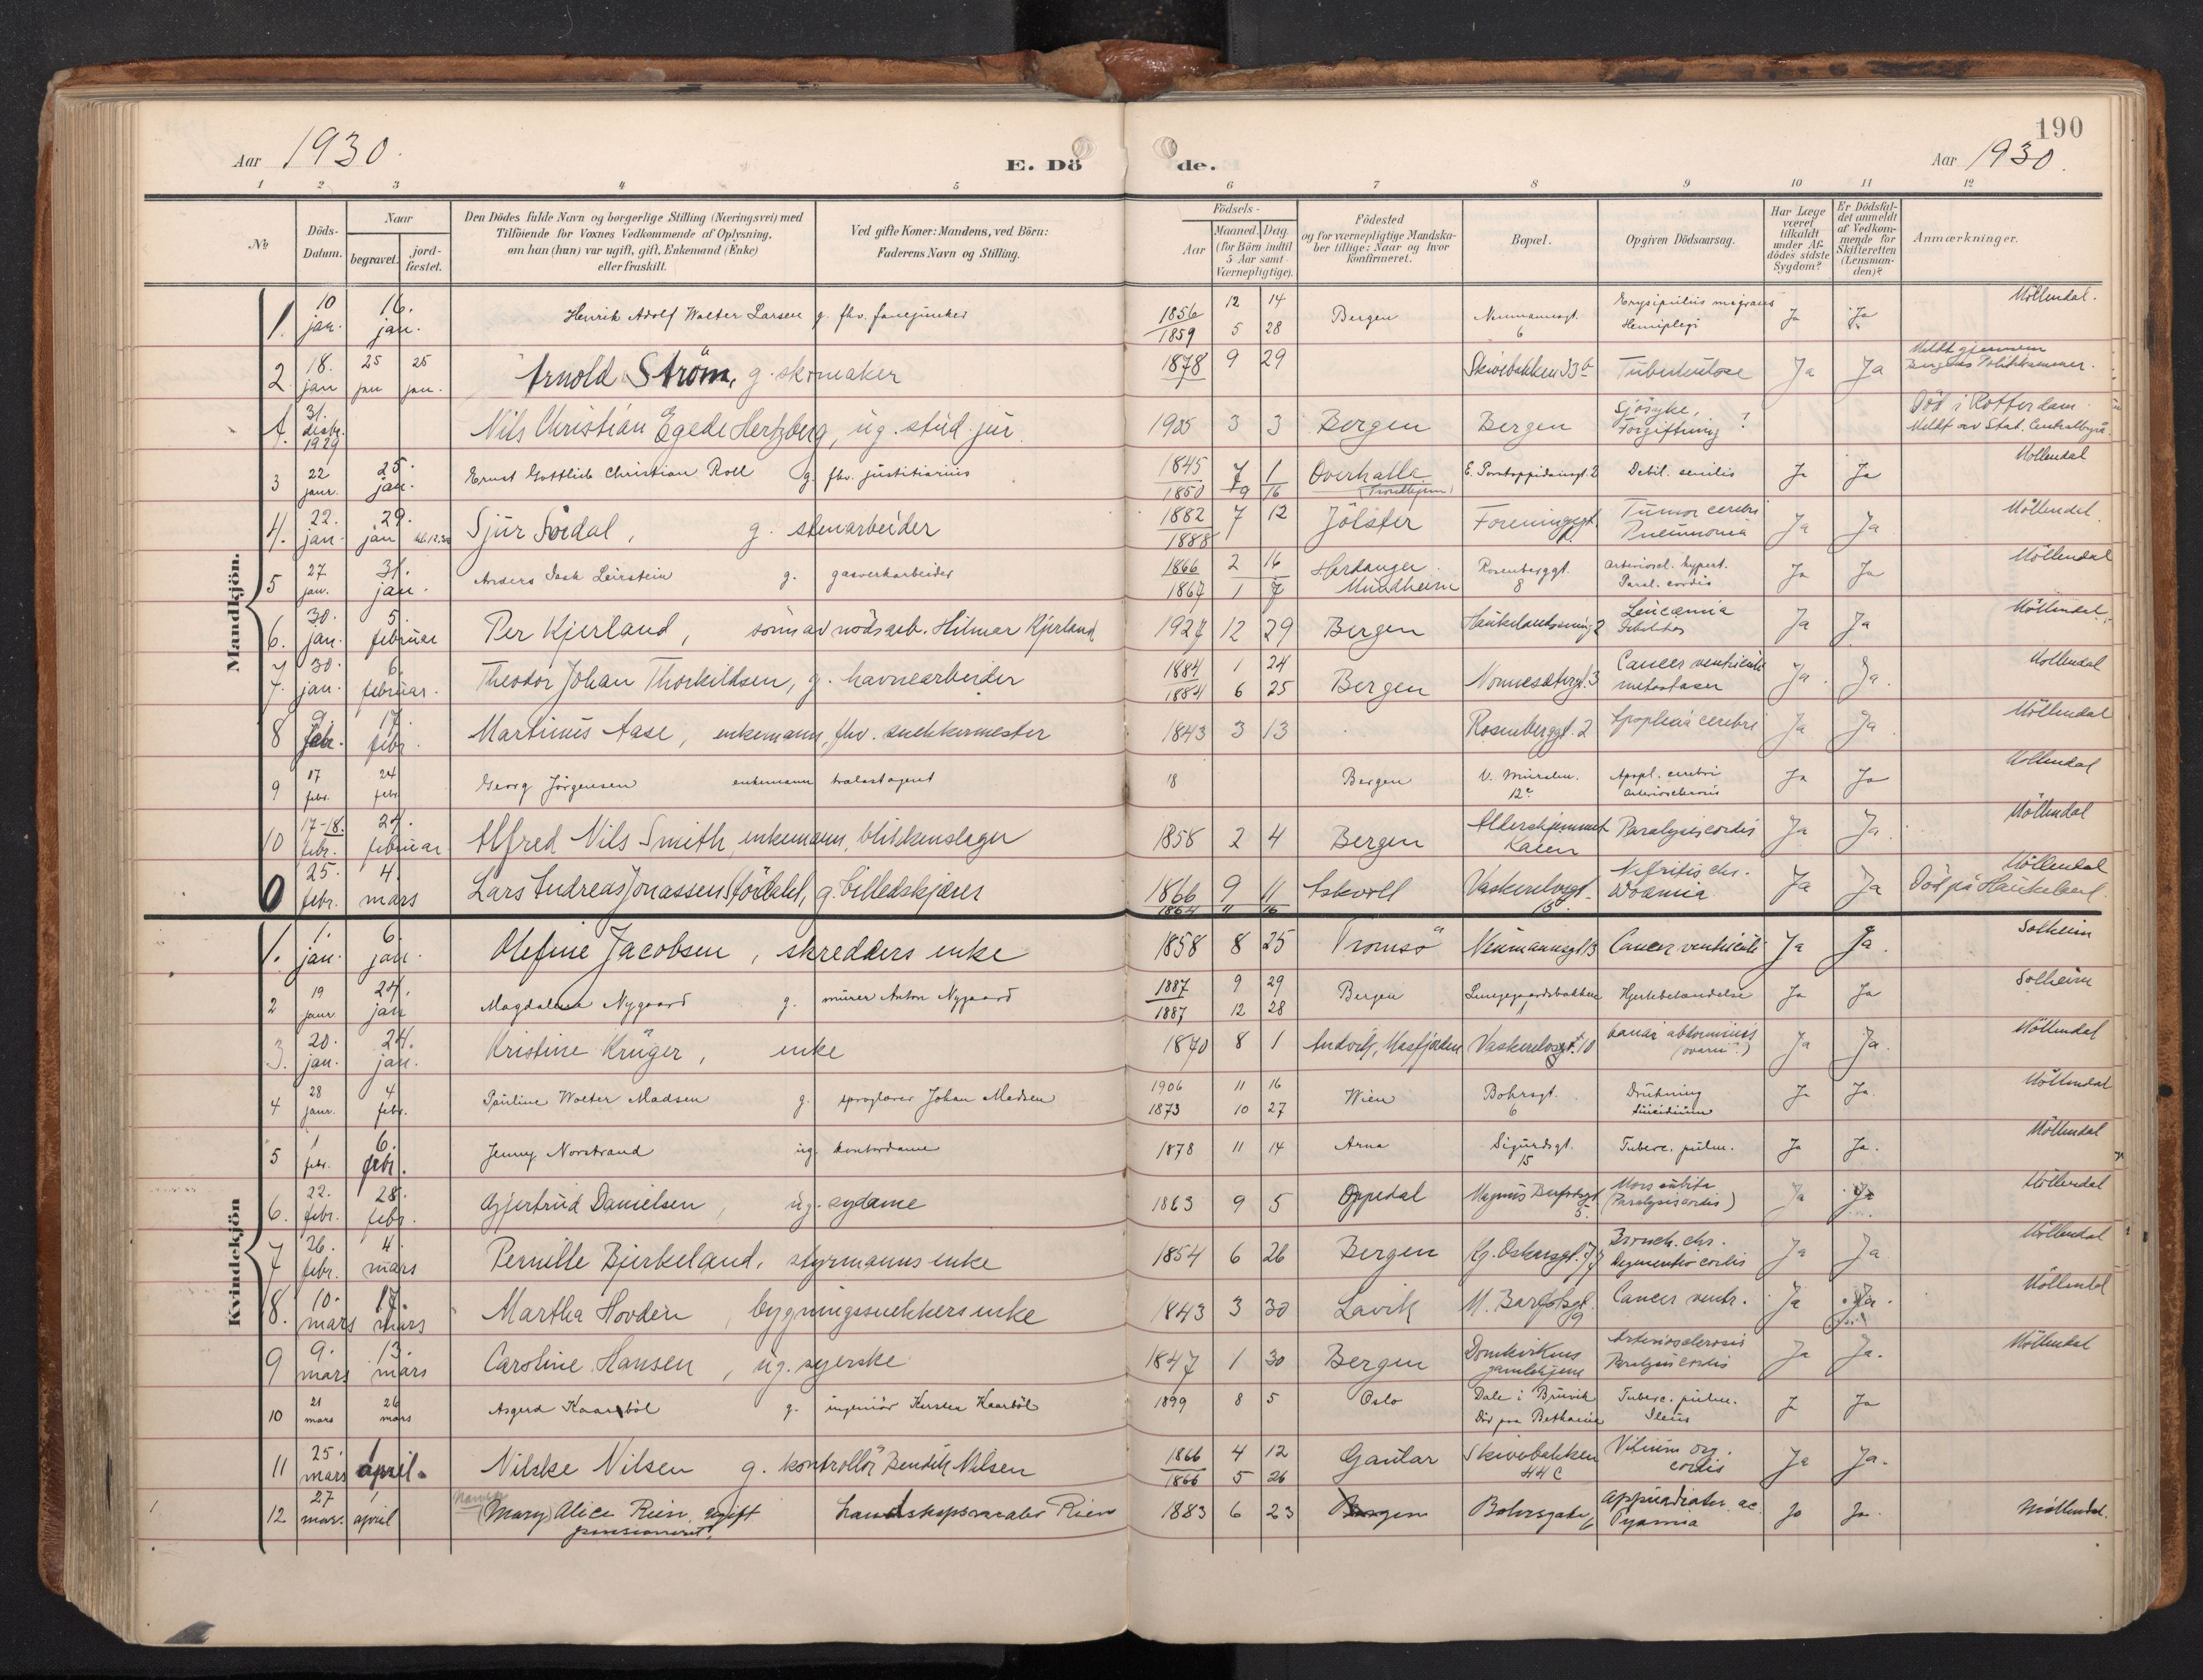 190
Aar 1930. E. Döde. Aar 1930.
1 2 3 4 5 6 7 8 9 10 11 12
No
Döds-Datum.
Naar
begravet.
jord-fæstet.
Den Dödes fulde Navn og borgerlige Stilling (Næringsvei) med
Tilföiende for Voxnes Vedkommende af Oplysning,
om han (hun) var ugift, gift, Enkemand (Enke)
eller fraskilt.
Ved gifte Koner: Mandens, ved Börn:
Faderens Navn og Stilling.
Födsels-
Aar
Maaned. Dag.
(for Börn indtil
5 Aar samt
Værnepligtige).
Födested
og for værnepligtige Mandska-
ber tillige: Naar og hvor
konfirmeret.
Bopæl.
Opgiven Dödsaarsag.
Har Læge
været
tilkaldt
under Af-
dödes sidste
Sygdom?
Er Dödsfal-
det anmeldt
af Vedkom-
mende for
Skifteretten
(Lensman-
den)?
Anmærkninger.
Mandkjön.
1. 10 jan. 16. jan. Henrik Adolf Walter Larsen g. fhv. fanejunker 1856 12 14 1859 5 28 Bergen Neumannsgt. 6 Hemiplegi Ja Ja Möllendal.
2. 18. jan 25 jan 25 jan. Arnold Ström, g. skomaker 1878 9 29 Skivebakken Tuberkulose Ja Ja Meldt gjennem
31. desbr. 1929 Nils Christian Egede Hertzberg, ug. stud. jur. 1905 3 3 Bergen Bergen Sjösyke, Forgiftning ? Död i Rotterdam. Meldt av Stat. Centralbyrå.
3 22 janr. 25. jan. Ernst Gottlieb Christian Roll g. fhv. justitiarius 1845 7 1 1850 9 16 Overhalla (Trondhjem) Debil. senilis Ja Ja Möllendal
4. 22. jan. 29. jan Sjur Söidal, g. stenarbeider 1882 7 12 1888 Jölster Foreningsgt. Tumor cerebri Pneumonia Ja Ja Möllendal.
5 27 jan. 31. jan. Leirstein g. gasverkarbeider 1866 2 16 1867 1 7 Hardanger. Mundheim Rosenberggt. 8 arterioscl. hypert. Paral. cordis Ja Ja Möllendal
6. 30. jan. 5. februar Per Kjerland, sönn av nödsarb. Hilmar Kjerland 1927 12 29 Bergen Leucæmia Ja Ja Möllendal.
7. 30. jan. 6. februar. Theodor Johan Thorkildsen, g. havnearbeider 1884 1 24 1884 6 25 Bergen Nonnesetergt. 3 Cancer ventriculi metastaser Ja. Ja. Möllendal
8 9. febr. 17. febr. Martinus Aase, enkemann, fhv. snekkermester 1843 3 13 Rosenberggt. 2 Apoplexia cerebri Ja Ja Möllendal
9 17 febr. 24 febr Georg Jörgensen enkemann trelastagent 18 Bergen V. Muralm. 12c Apopl. cerebri arteriosclerosis Ja Ja Möllendal
10 17-18. febr. 24. februar Alfred Nils Smith, enkemann, blikkenslager 1858 2 4 Bergen Aldershjemmet Kalen Paralysis cordis Ja Ja Möllendal
25. febr. 4. mars Lars Andreas Jonassen g. billedskjærer 1866 9 11 1864 11 16 Askvoll Vaskerelvsgt. 15. Nefritis chr. Uræmia Ja Ja Möllendal Död på Haukeland.
Kvindekjön
1. 1. jan. 6. jan. Olefine Jacobsen, skredders enke 1858 8 25 Tromsö Neumannsgt 13 Cancer ventriculi Ja Ja. Solheim
2 19 janr 24. jan Magdalena Nygaard g. murer Anton Nygaard 1887 9 29 1887 12 28 Bergen Lungegaardsbakken Ja Ja Solheim
3. 20. jan. 24. jan. Kristine Krüger, enke 1870 8 1 Andvik, Masfjorden Vaskerelvsgt. 10 Ja Ja. Möllendal
4 28 janr. 4 febr. Pauline Wolter Madsen g. sproglærer Johan Madsen 1906 11 16 1873 10 27 Wien Bohrsgt. 6 Drukning Suicidium Ja Ja. Möllendal
5 1 febr. 6. febr. Jenny Norstrand ug. kontordame 1878 11 14 Arna Sigurdsgt. 15 Tuberc. pulm. Ja Ja. Möllendal
6. 22. febr. 28. febr. Gjertrud Danielsen, ug. sydame 1863 9 5 Oppedal Magnus Barfodsgt 5. Mors subita (Paralysis cordis) Ja Ja Möllendal
7 26. febr. 4. mars Pernille Bjerkeland, styrmanns enke 1854 6 26 Bergen Kg. Oskarsgt. Bronch. chr. Degeneratio cordis Ja Ja Möllendal
8. 10. mars 17. mars Martha Hovden, bygningssnekkers enke 1843 3 30 Lavik M. Barfotsgt. 19 Cancer ventr. Ja Ja. Möllendal
9 9. mars 13. mars Caroline Hansen, ug. syerske 1847 1 30 Bergen Domkirkens gamlehjem Arteriosclerosis Paralysis cordis Ja Ja. Möllendal
10 21 mars 26 mars Asgerd Kaarböl g. ingeniör Kaarböl 1899 8 5 Oslo Dale i Bruvik Död paa Bethania Tuberc. pulm. Ileus Ja Ja
11 25. mars 1 april. Nilske Nilsen g. kontrollör Bendik Nilsen 1866 4 12 1866 5 26 Gaular Skivebakken 44 C Vitium org. cordis Ja Ja.
12 27 mar. 1 april (Mary) Alice Rien, ugift pensioneret, Rien 1883 6 23 Bergen Bohrsgate 6 Appendicitis ac Pyæmia Ja Ja. Möllendal.